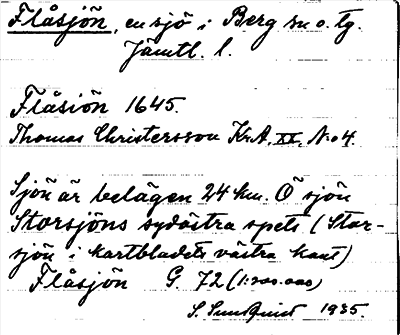 Flåsjön, en sjö i Berg sn o. tg.
Jämtl. l.
Flåsiön 1645.
Thomas Christersson Kr.A. XX, No 4.
Sjön är belägen 24 km. Ö sjön
Storsjöns sydöstra spets (Stor-
sjön i kartbladets västra kant)
Flåsjön G. 72 (1:200.000)
S. Sundquist 1935